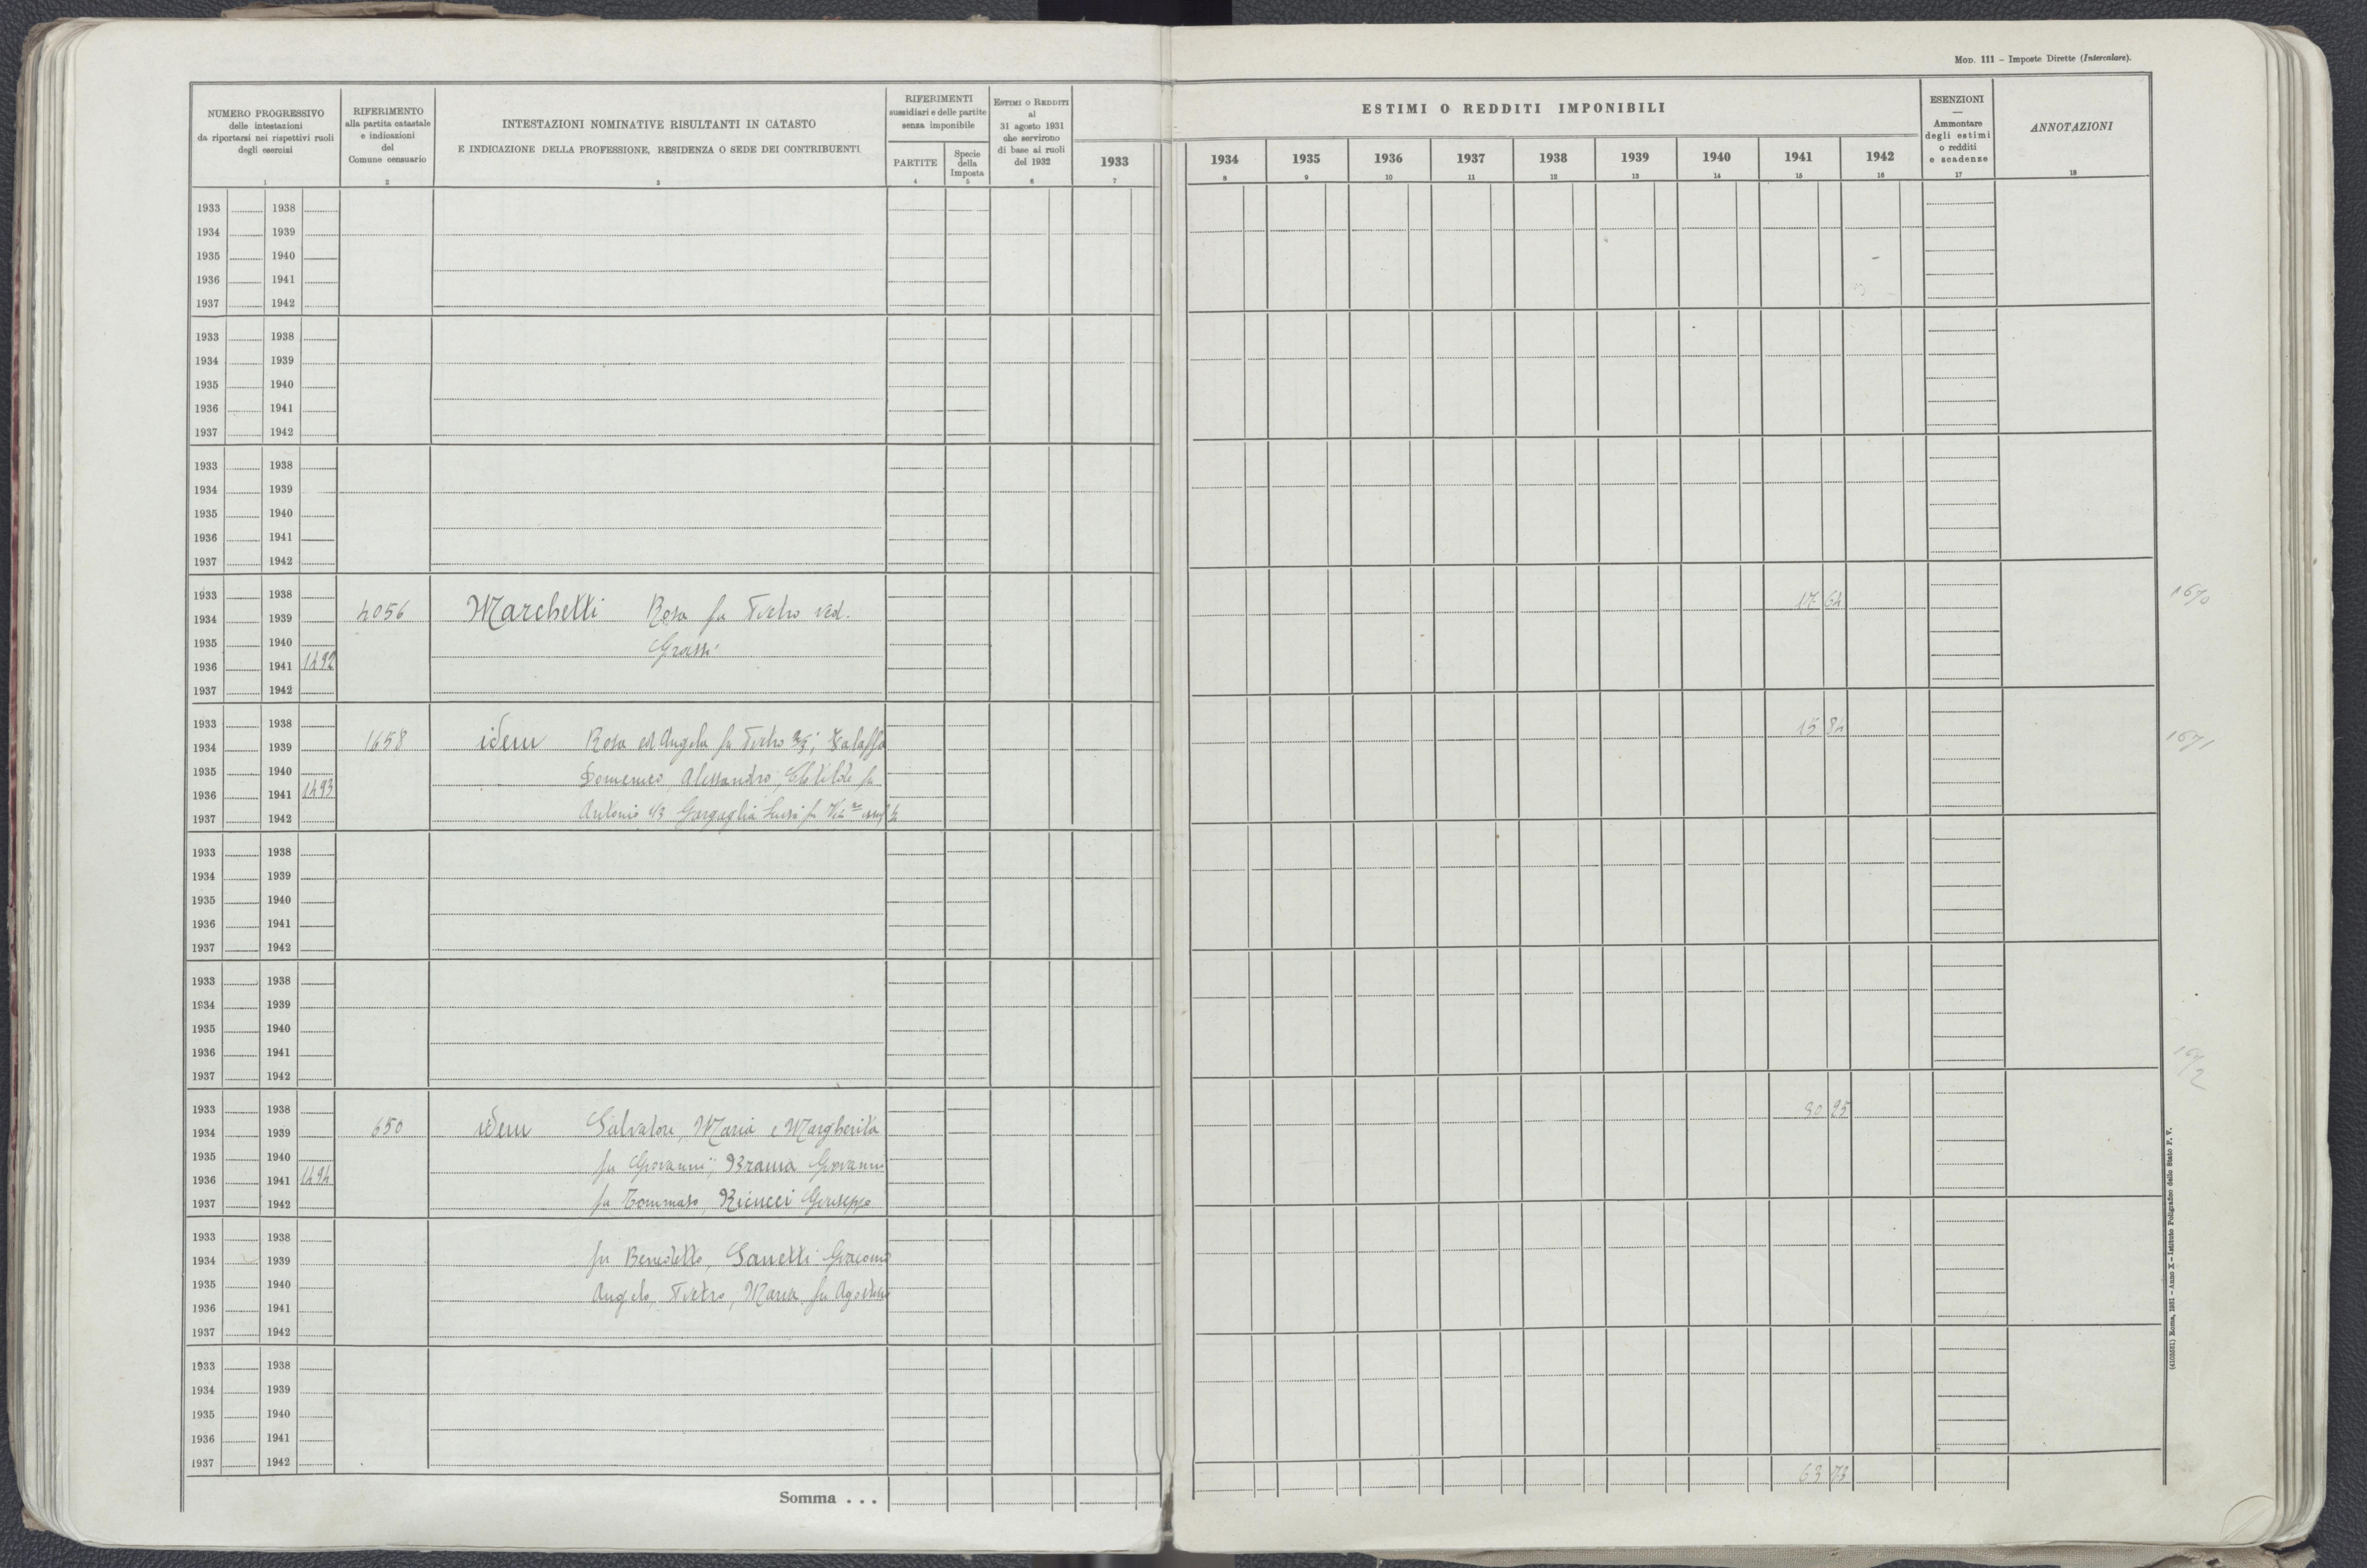 Mod. 111 – Imposte Dirette (Intercalare).
NUMERO PROGRESSIVO
delle intestazioni
da riportarsi nei rispettivi ruoli
degli esercizi
1
RIFERIMENTO
alla partita catastale
e indicazioni
del
Comune censuario
2
INTESTAZIONI NOMINATIVE RISULTANTI IN CATASTO
E INDICAZIONE DELLA PROFESSIONE, RESIDENZA O SEDE DEI CONTRIBUENTI
3
RIFERIMENTI
sussidiari e delle partite
senza imponibile
PARTITE
4
Specie
della
Imposta
5
Estimi o Redditi
al
31 agosto 1931
che servirono
di base ai ruoli
del 1932
6
1933
7
ESTIMI O REDDITI IMPONIBILI
1934 1935 1936 1937 1938 1939 1940 1941 1942
8 9 10 11 12 13 14 15 16
ESENZIONI
—
Ammontare
degli estimi
o redditi
e scadenze
17
ANNOTAZIONI
18
1933 1938
1934 1939
1935 1940
1936 1941
1937 1942
1933 1938
1934 1939
1935 1940
1936 1941
1937 1942
1933 1938
1934 1939
1935 1940
1936 1941
1937 1942
1933 1938
1934 1939 4056 Marchetti Rosa fu Pietro ved. 17 64 1670
1935 1940 Grassi
1936 1941 1492
1937 1942
1933 1938
1934 1939 1658 idem Rosa ed Angela fu Pietro 2/3; 15 84 1671
1935 1940 Domenico, Alessandro, Clotilde fu
1936 1941 1493
1937 1942 Antonio 1/3 Gargaglia Luisa fu
1933 1938
1934 1939
1935 1940
1936 1941
1937 1942
1933 1938
1934 1939
1935 1940
1936 1941
1937 1942
1672
1933 1938
1934 1939 650 idem Salvatore, Maria e Margherita 30 25
1935 1940 fu Giovanni; Giovanni
1936 1941 1494
1937 1942 fu Tommaso, Ricucci Giuseppe
1933 1938
1934 1939 fu Benedetto, Sanetti Giacomo
1935 1940 Angelo, Pietro, Maria fu Agostino
1936 1941
1937 1942
1933 1938
1934 1939
1935 1940
1936 1941
1937 1942
Somma . . . 63 73
(4103681) Roma, 1931 – Anno X – Istituto Poligrafico dello Stato P. V.